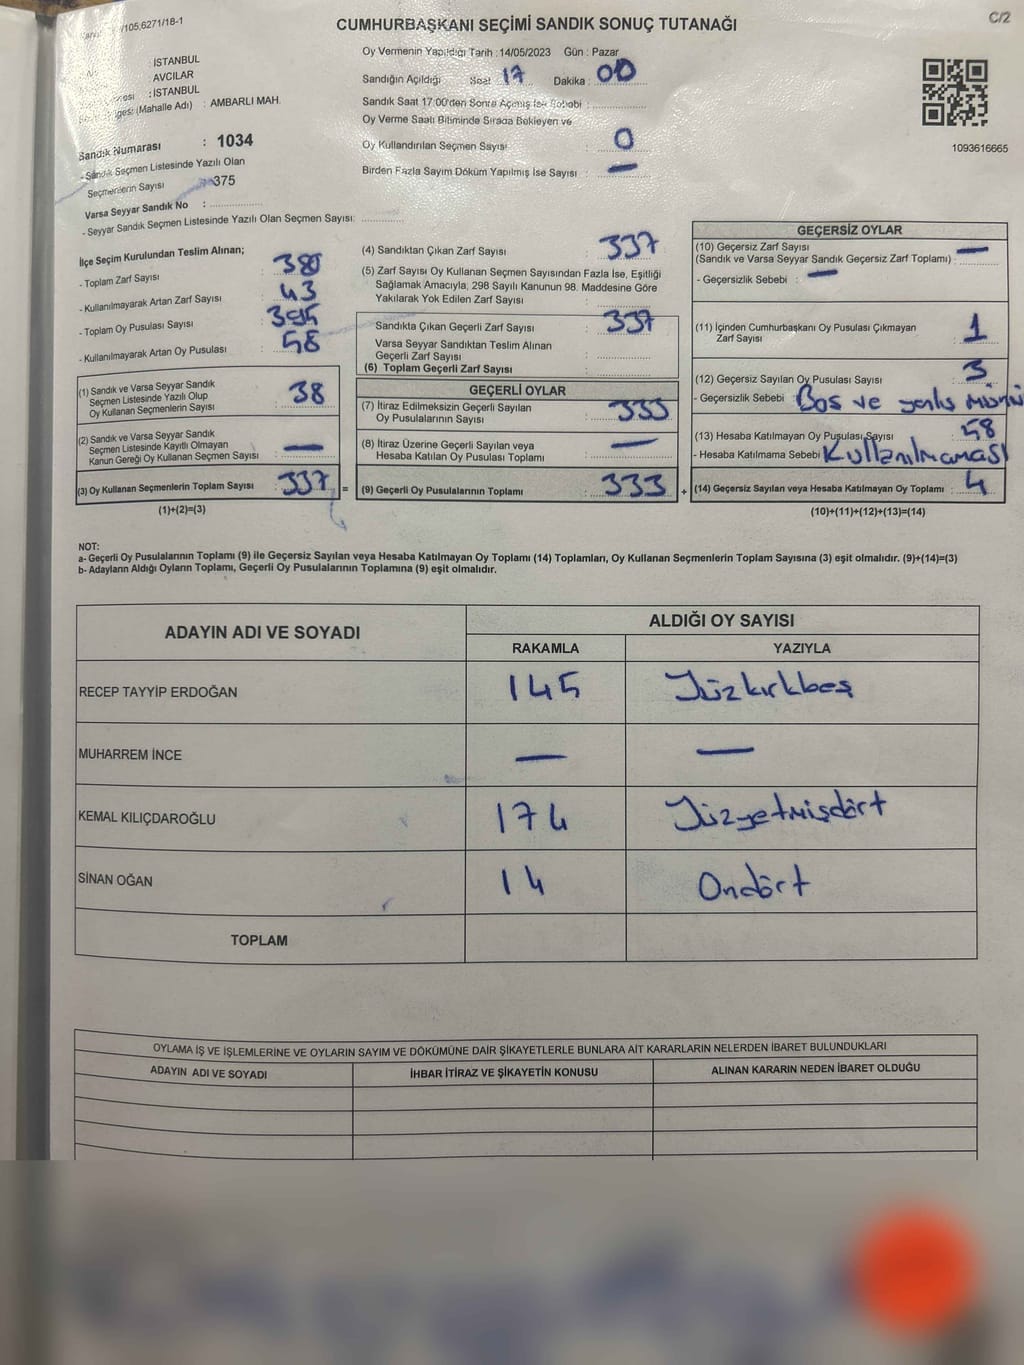 /105,6271/18-1
C/2
CUMHURBAŞKANI SEÇİMİ SANDIK SONUÇ TUTANAĞI
: İSTANBUL
: AVCILAR
: İSTANBUL
(Mahalle Adı) : AMBARLI MAH.
Sandık Numarası : 1034
- Sandık Seçmen Listesinde Yazılı Olan
Seçmenlerin Sayısı 375
Varsa Seyyar Sandık No :
- Seyyar Sandık Seçmen Listesinde Yazılı Olan Seçmen Sayısı:
Oy Vermenin Yapıldığı Tarih : 14/05/2023 Gün : Pazar
Sandığın Açıldığı Saat 17 Dakika : 00
Sandık Saat 17:00'den Sonra Açılmış İse Sebebi :
Oy Verme Saati Bitiminde Sırada Bekleyen ve
Oy Kullandırılan Seçmen Sayısı : 0
Birden Fazla Sayım Döküm Yapılmış İse Sayısı : —
1093616665
İlçe Seçim Kurulundan Teslim Alınan;
- Toplam Zarf Sayısı : 380
- Kullanılmayarak Artan Zarf Sayısı : 43
- Toplam Oy Pusulası Sayısı : 395
- Kullanılmayarak Artan Oy Pusulası : 58
(1) Sandık ve Varsa Seyyar Sandık
Seçmen Listesinde Yazılı Olup
Oy Kullanan Seçmenlerin Sayısı : 38
(2) Sandık ve Varsa Seyyar Sandık
Seçmen Listesinde Kayıtlı Olmayan
Kanun Gereği Oy Kullanan Seçmen Sayısı : —
(3) Oy Kullanan Seçmenlerin Toplam Sayısı : 337 =
(1)+(2)=(3)
(4) Sandıktan Çıkan Zarf Sayısı : 337
(5) Zarf Sayısı Oy Kullanan Seçmen Sayısından Fazla İse, Eşitliği
Sağlamak Amacıyla, 298 Sayılı Kanunun 98. Maddesine Göre
Yakılarak Yok Edilen Zarf Sayısı :
Sandıkta Çıkan Geçerli Zarf Sayısı : 337
Varsa Seyyar Sandıktan Teslim Alınan
Geçerli Zarf Sayısı :
(6) Toplam Geçerli Zarf Sayısı :
GEÇERLİ OYLAR
(7) İtiraz Edilmeksizin Geçerli Sayılan
Oy Pusulalarının Sayısı : 333
(8) İtiraz Üzerine Geçerli Sayılan veya
Hesaba Katılan Oy Pusulası Toplamı : —
(9) Geçerli Oy Pusulalarının Toplamı : 333 +
GEÇERSİZ OYLAR
(10) Geçersiz Zarf Sayısı
(Sandık ve Varsa Seyyar Sandık Geçersiz Zarf Toplamı) : —
- Geçersizlik Sebebi : —
(11) İçinden Cumhurbaşkanı Oy Pusulası Çıkmayan
Zarf Sayısı : 1
(12) Geçersiz Sayılan Oy Pusulası Sayısı : 3
- Geçersizlik Sebebi : Boş ve yanlış mühür
(13) Hesaba Katılmayan Oy Pusulası Sayısı : 58
- Hesaba Katılmama Sebebi Kullanılmaması
(14) Geçersiz Sayılan veya Hesaba Katılmayan Oy Toplamı : 4
(10)+(11)+(12)+(13)=(14)
NOT:
a- Geçerli Oy Pusulalarının Toplamı (9) ile Geçersiz Sayılan veya Hesaba Katılmayan Oy Toplamı (14) Toplamları, Oy Kullanan Seçmenlerin Toplam Sayısına (3) eşit olmalıdır. (9)+(14)=(3)
b- Adayların Aldığı Oyların Toplamı, Geçerli Oy Pusulalarının Toplamına (9) eşit olmalıdır.
ADAYIN ADI VE SOYADI
ALDIĞI OY SAYISI
RAKAMLA YAZIYLA
RECEP TAYYİP ERDOĞAN 145 Yüzkırkbeş
MUHARREM İNCE — —
KEMAL KILIÇDAROĞLU 174 Yüzyetmişdört
SİNAN OĞAN 14 Ondört
TOPLAM
OYLAMA İŞ VE İŞLEMLERİNE VE OYLARIN SAYIM VE DÖKÜMÜNE DAİR ŞİKAYETLERLE BUNLARA AİT KARARLARIN NELERDEN İBARET BULUNDUKLARI
ADAYIN ADI VE SOYADI İHBAR İTİRAZ VE ŞİKAYETİN KONUSU ALINAN KARARIN NEDEN İBARET OLDUĞU